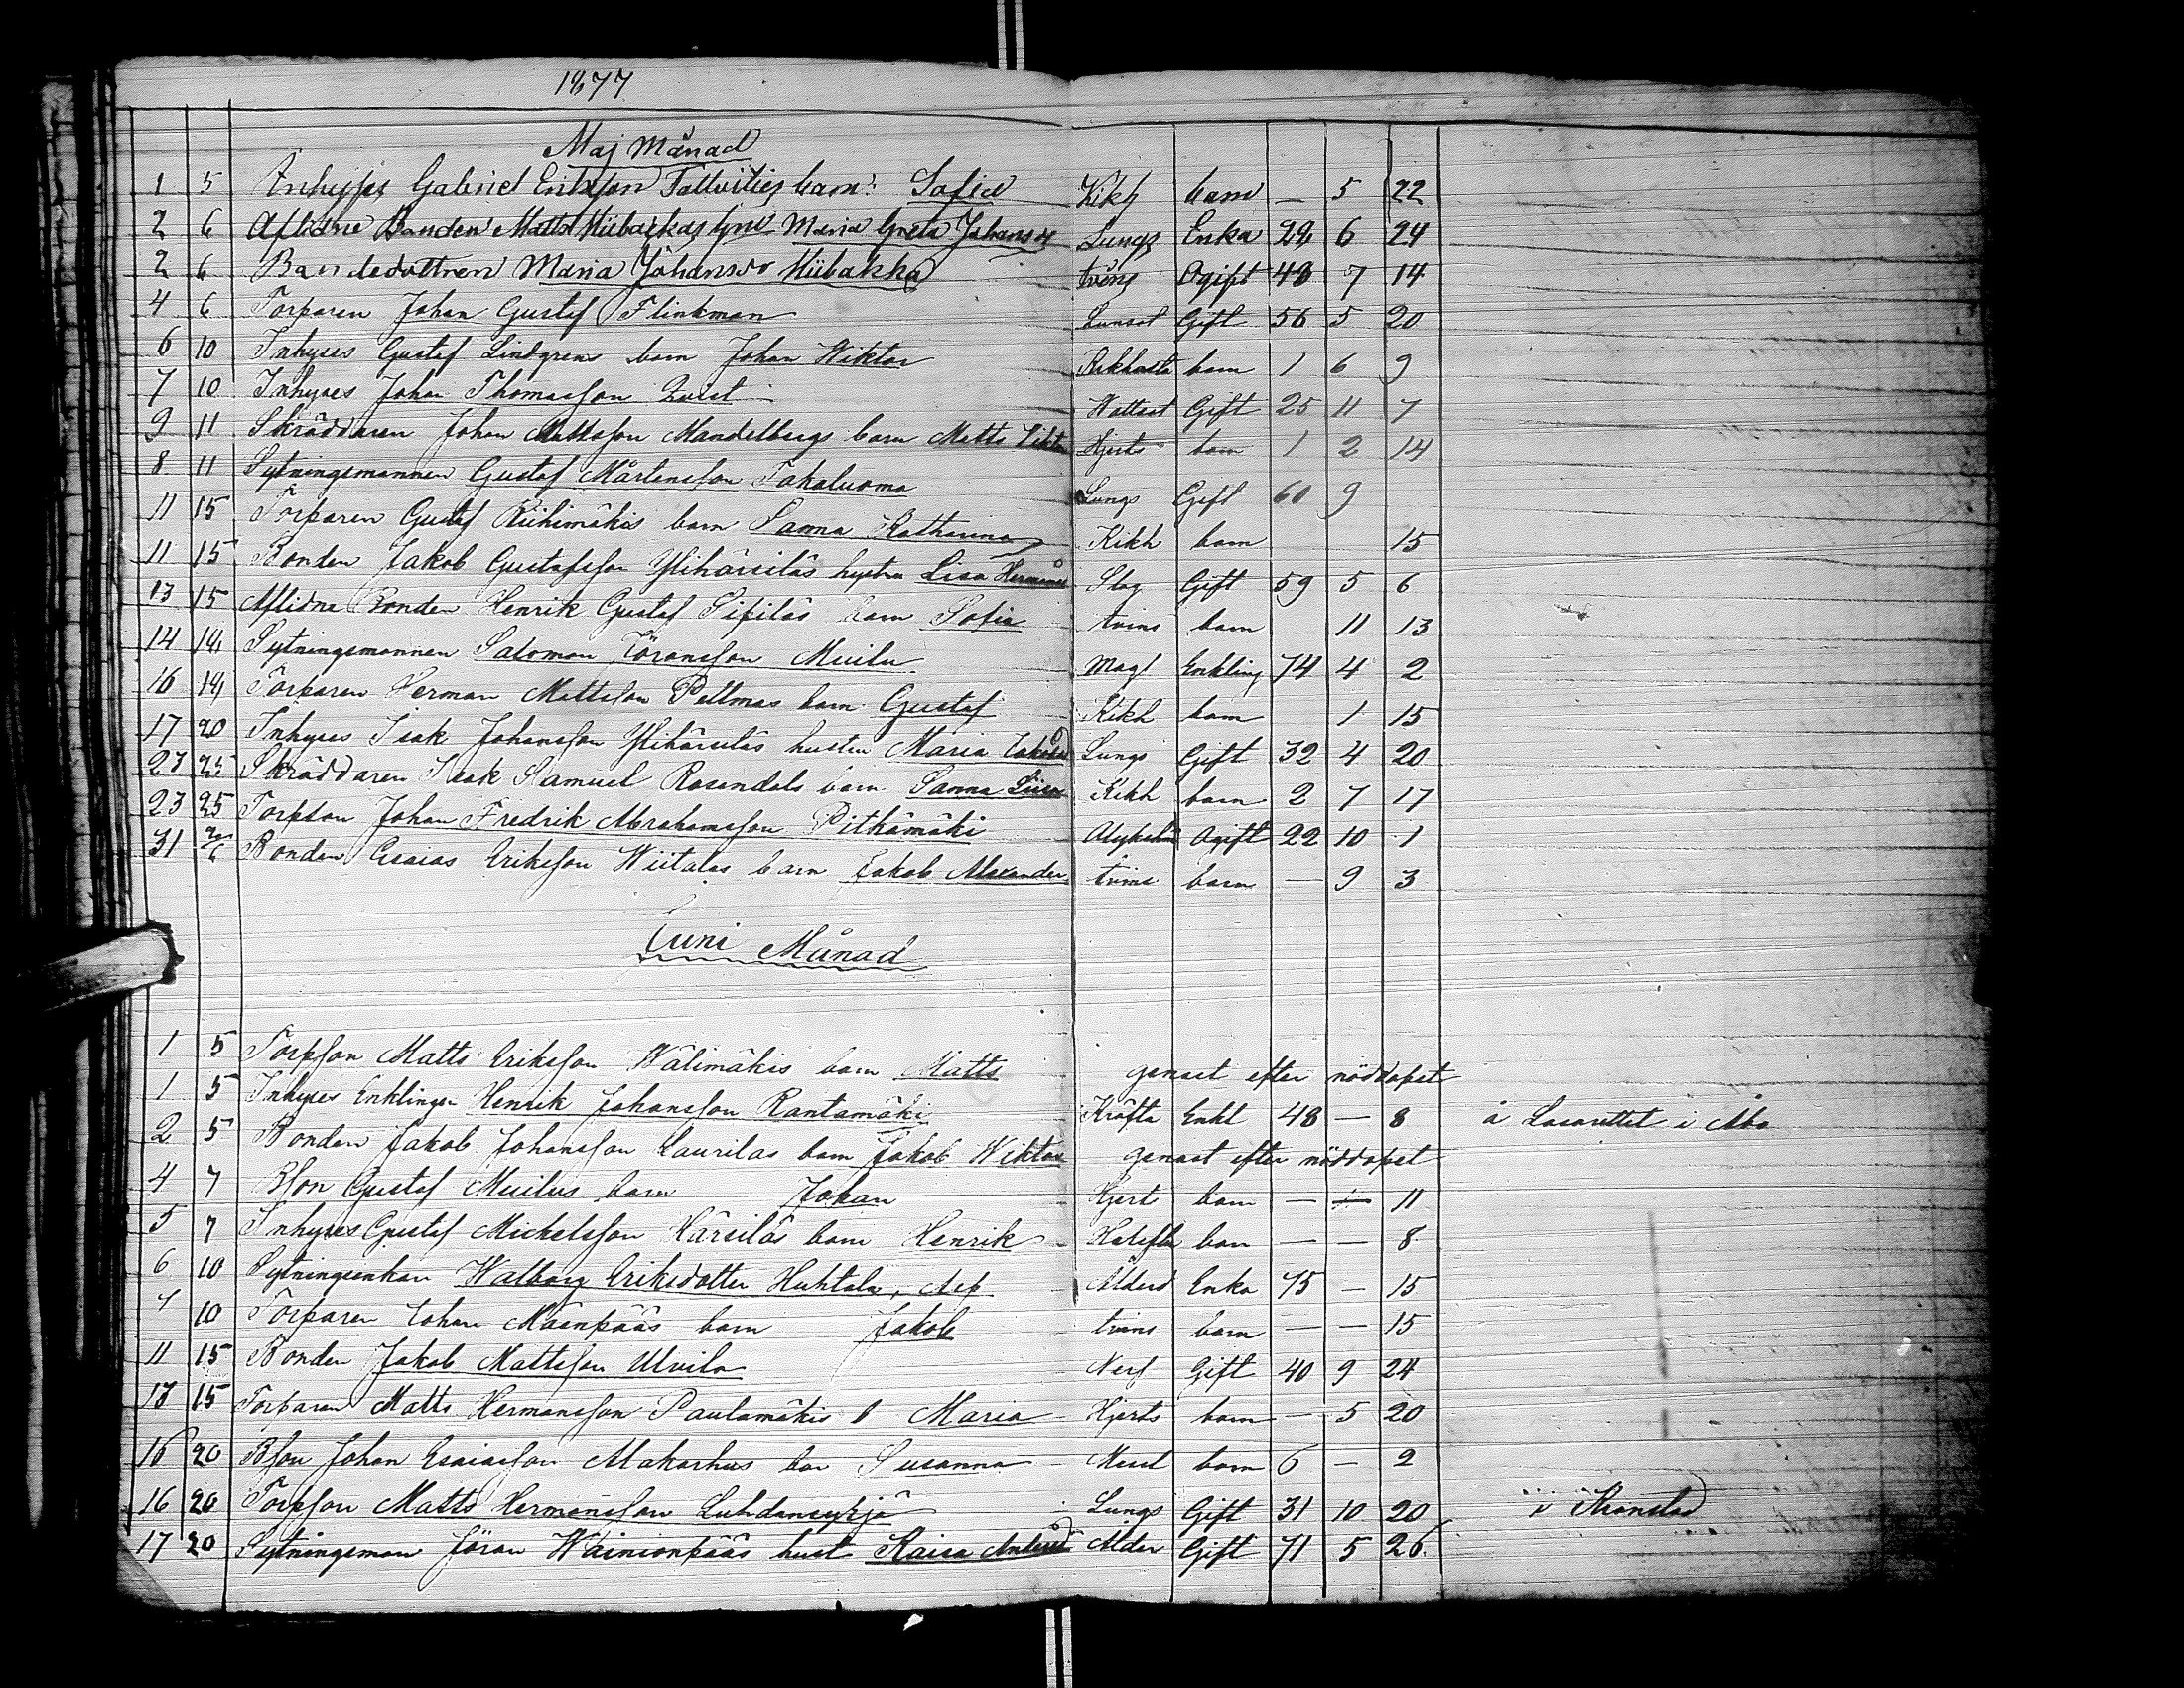 1877
Maj Månad
1 5 Inhyses Gabriel Eriksson Tallvities barn: Sofia Kikh barn — 5 22
2 6 Aflidne Bonden Matts Hiibackas Maria Greta Johansdr Lungs Enka 22 6 24
2 6 Bondedottren Maria Johansdr Hiibakka tvins Ogift 48 7 14
4 6 Torparen Johan Gustaf Flinkman Lunsot Gift 56 5 20
6 10 Inhyses Gustaf Lindgrens barn Johan Wiktor Kikhosta barn 1 6 9
7 10 Inhyses Johan Thomasson Quist Wattsot Gift 25 11 7
9 11 Skräddaren Johan Mattsson Mandelbergs barn Matts Hjerts barn 1 2 14
8 11 Sytningsmannen Gustaf Mårtensson Takaluoma Lungs Gift 60 9
11 15 Torparen Gustaf Riihimäkis barn Sanna Katharina Kikh barn 15
11 15 Bonden Jakob Gustafsson Ylihärsiläs hustru Lisa Hermansd Slag Gift 59 5 6
13 15 Aflidne Bonden Henrik Gustaf Sipiläs barn Sofia tvins barn 11 13
14 18 Sytningsmannen Salomon Jöransson Muilu Magl Enkling 74 4 2
16 18 Torparen Herman Mattsson Peltmas barn Gustaf Kikh barn 1 15
17 20 Inhyses Isak Johansson Ylihärsiläs hustru Maria Jakobsd Lungs Gift 32 4 20
23 25 Skräddaren Isak Samuel Rosendals barn Sanna Kikh barn 2 7 17
23 25 Torpson Johan Fredrik Abrahamsson Pitkämäki Olyksh Ogift 22 10 1
31 2/6 Bonden Esaias Eriksson Wiitalas barn Jakob Alexander tvins barn — 9 3
Juni Månad
1 5 Torpson Matts Eriksson Wälimäkis barn Matts genast efter nöddopet
1 5 Inhyses Enklingen Henrik Johansson Rantamäki Kräfta Enkl 48 — 8 å Lasarettet i Åbo
2 5 Bonden Jakob Johansson Laurilas barn Jakob Wiktor genast efter nöddopet
4 7 Bson Gustaf Muilus barn Johan Hjert barn — — 11
5 7 Inhyses Gustaf Michelsson Härsiläs barn Henrik barn — — 8
6 10 Sytningsenkan Walborg Eriksdotter Huhtala, Ålderd Enka 75 — 15
7 10 Torparen Johan Mäenpääs barn Jakob tvins barn — — 15
11 15 Bonden Jakob Mattsson Ulvila Nerf Gift 40 9 24
13 15 Torparen Matts Hermansson Paulamäkis Maria Hjerts barn — 5 20
16 20 Bson Johan Esaiasson Makarhus bar Susanna Messl barn 6 — 2
16 20 Torpson Matts Hermansson Luhdansyrjä Lungs Gift 31 10 20 i Kronstad
17 20 Sytningsman Jöran Wainionpääs hust Kaisa Ålder Gift 71 5 26